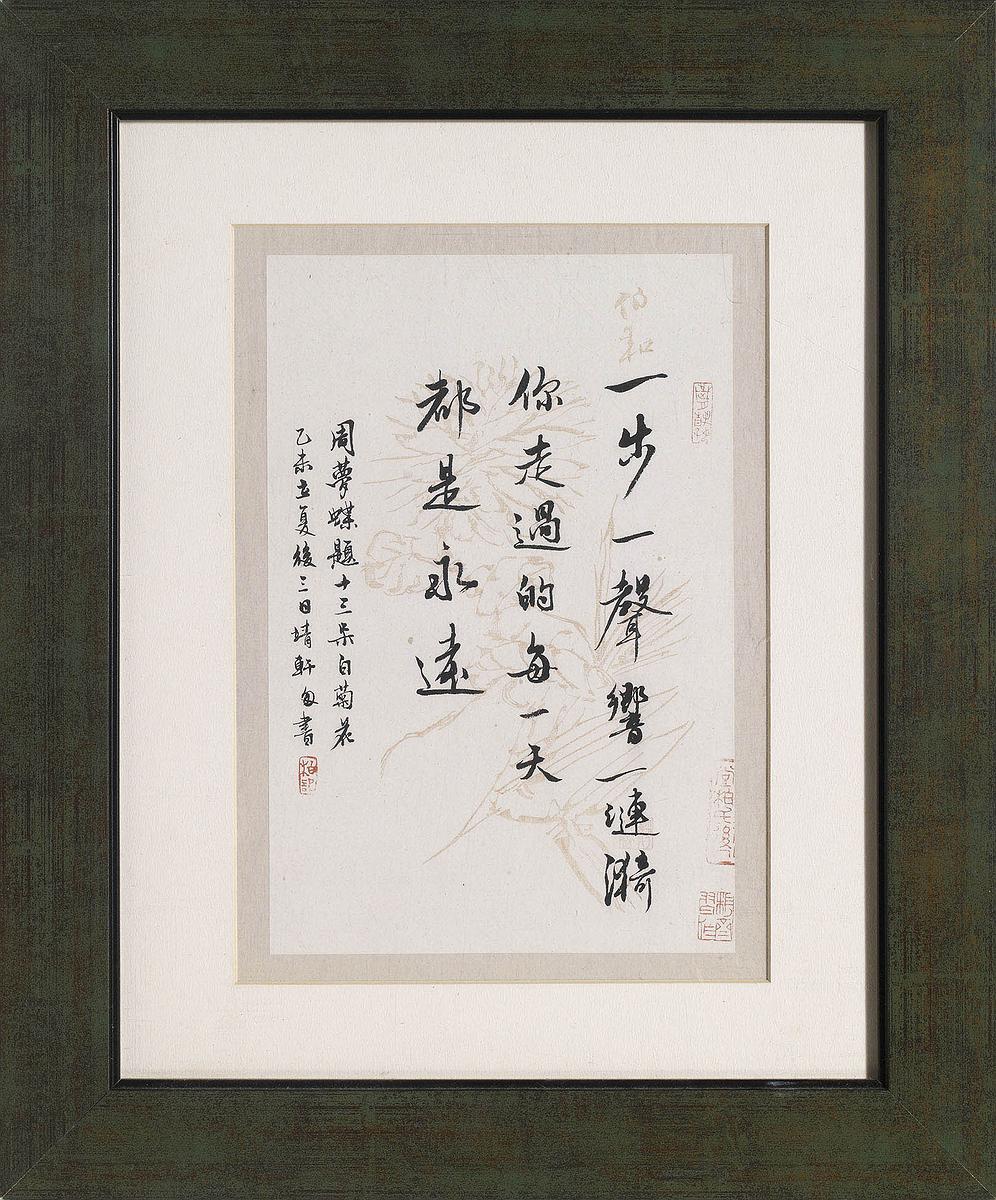 一步一聲響一漣漪
你走過的每一天
都是永遠
周夢蝶題十三朵白菊花
乙未立夏後三日靖軒女書
伯和